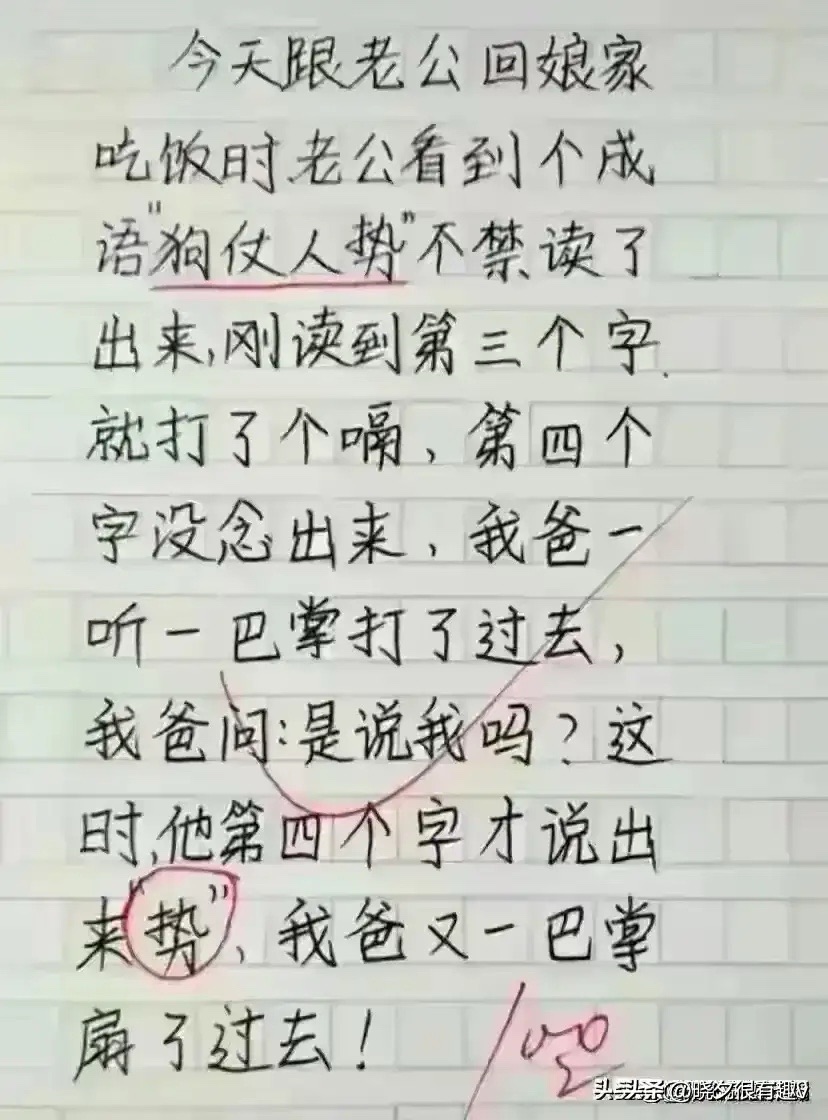 今天跟老公回娘家
吃饭时,老公看到个成
语"狗仗人势"不禁读了
出来,刚读到第三个字
就打了个嗝,第四个
字没念出来,我爸一
听一巴掌打了过去,
我爸问:是说我吗?这
时,他第四个字才说出
来"势",我爸又一巴掌
扇了过去!
头条 @晓夕很有趣V